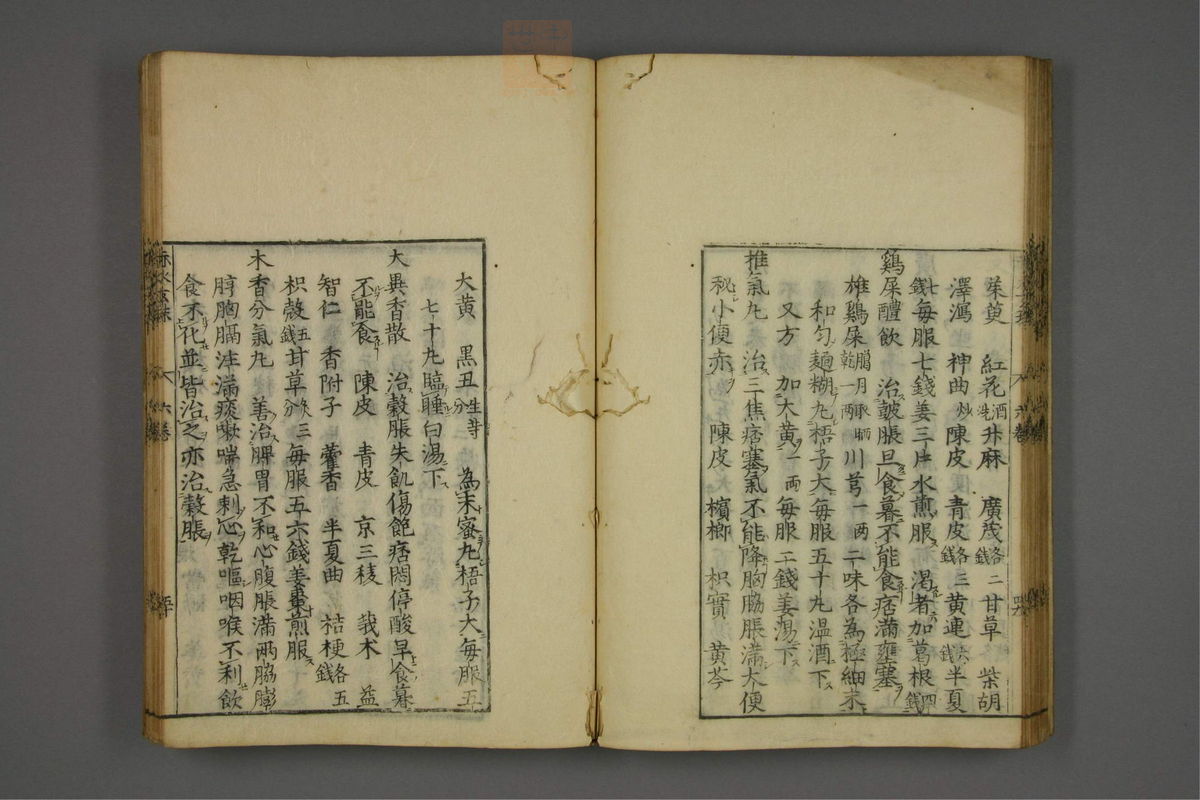 茱萸 紅花酒洗 升麻 廣茂各二錢 甘草 柴胡
澤瀉 神曲炒 陳皮 青皮各三錢 黄連六錢 半夏
七錢毎服七錢姜三片水煎服 渇者加葛根四錢
鷄屎醴飲 治皷脹旦食暮不能食痞滿壅塞
雄鷄屎臘月取晒乾一兩 川芎一兩 二味各為極細末
和匀麺糊丸梧子大毎服五十丸温酒下
又方 加大黄一兩 毎服二錢姜湯下
推氣丸 治三焦痞塞氣不能降胸脇脹滿大便
秘小便赤 陳皮 檳榔 枳實 黄芩
大黄 黒丑生等分 為末蜜丸梧子大毎服五
七十丸臨睡白湯下
大異香散 治穀脹失飢傷飽痞悶停酸早食暮
不能食 陳皮 青皮 京三稜 莪朮 益
智仁 香附子 藿香 半夏曲 桔梗各五錢
枳殻五錢 甘草炙三分 毎服五六錢姜棗煎服
木香分氣丸 善治脾胃不和心腹脹滿兩脇膨
脝胸膈注滿痰嗽喘急刺心乾嘔咽喉不利飲
食不化並皆治之亦治穀脹
六卷